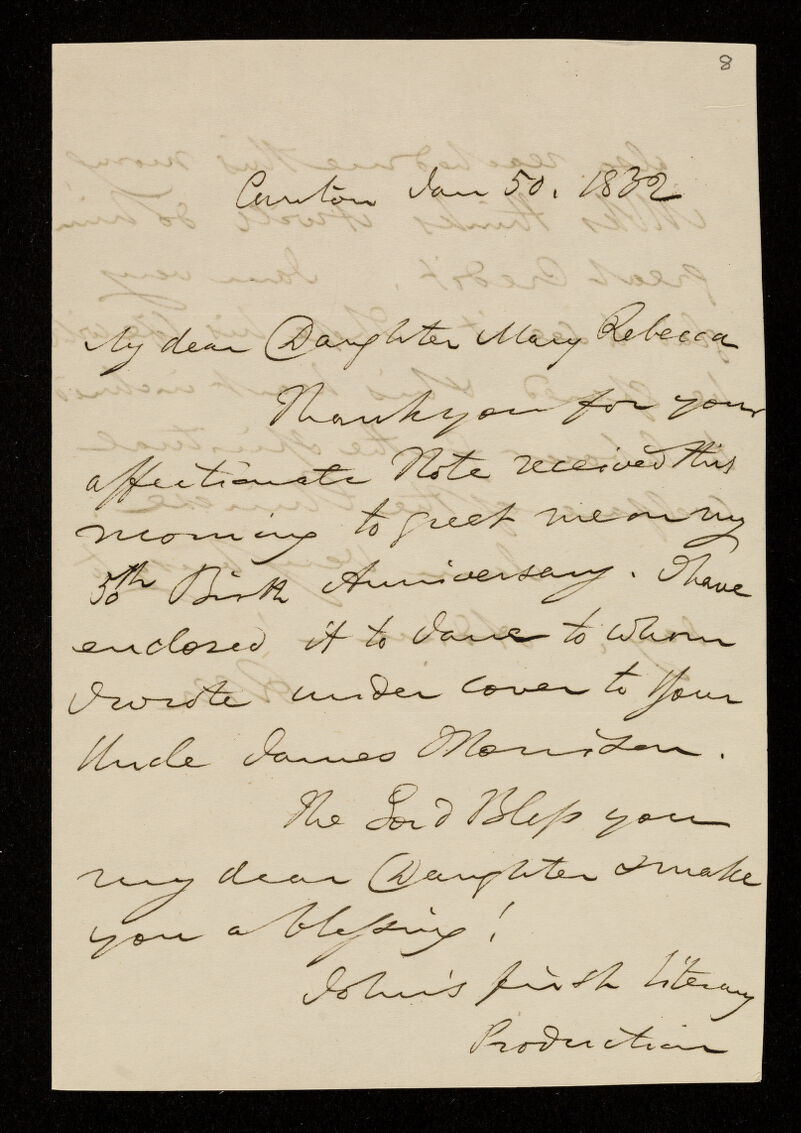 8
Canton Jan 50. 1832
My dear Daughter Mary Rebecca
Thank you for your
affectionate Note received this
morning to greet me on my
50th Birth Anniversary. I have
enclosed it to Jane to whom
I wrote under cover to Your
Uncle James Morrison.
The Lord Bless you
my dear Daughter & make
you a blessing!
John's first literary
Production